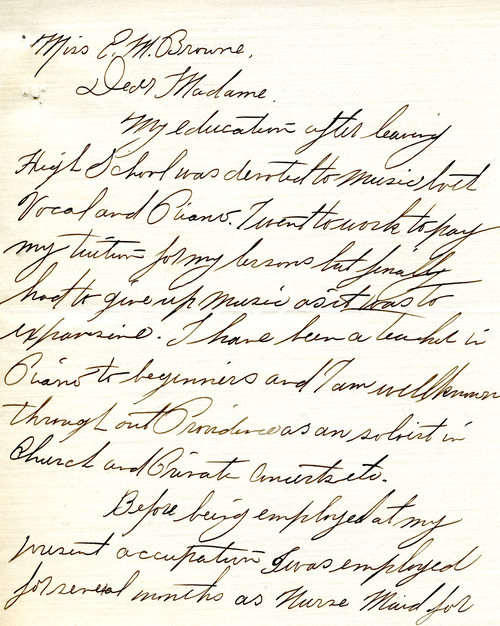 Miss E. M. Browne,
Dear Madame.
My education after leaving
High School was devoted to music both
Vocal and Piano. I went to work to pay
my tuition for my lessons but finally
had to give up music as it was to
expansine. I have been a teacher in
Piano to beginners and I am well known
through out Providence as an soloist in
Church and Private Concerts etc.
Before being employed at my
present occupation I was employed
for several months as Nurse Maid for